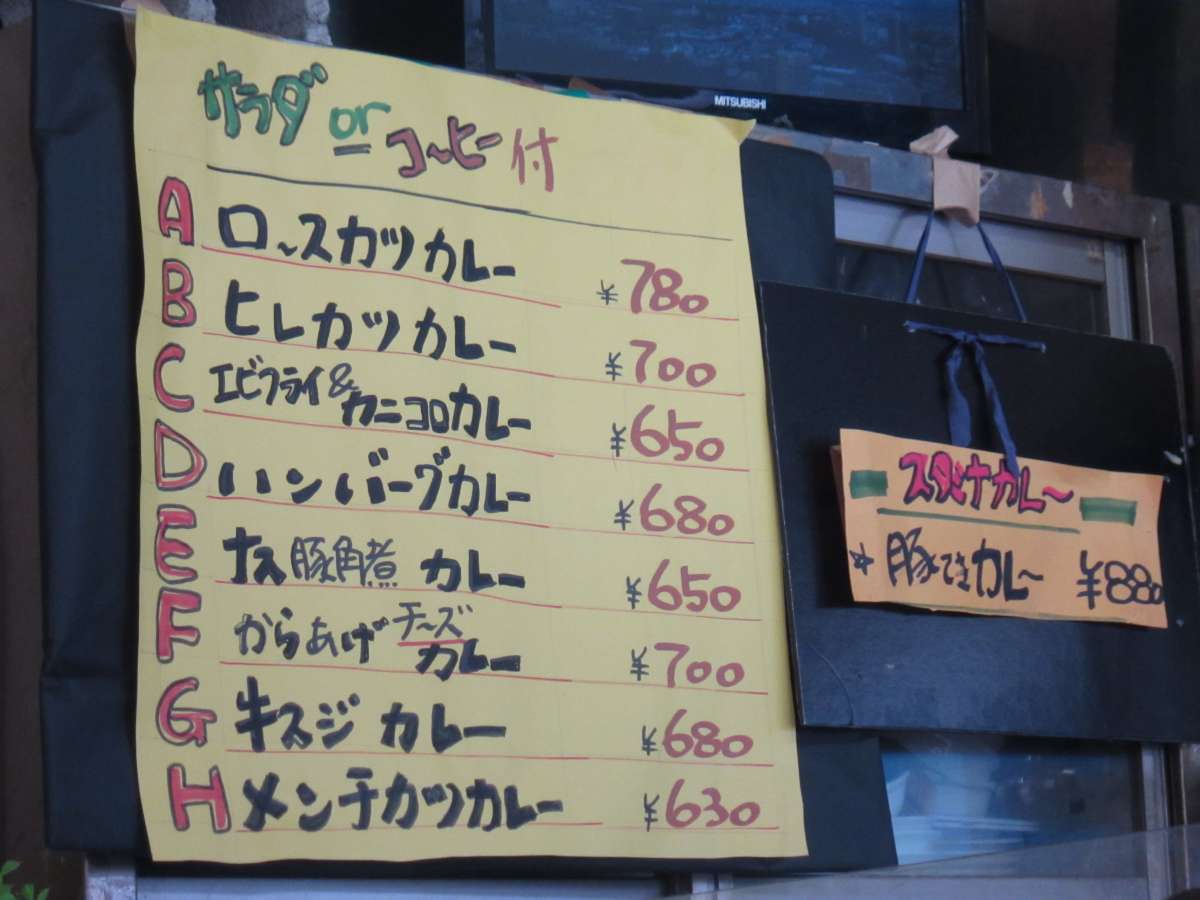 MITSUBISHI
サラダ or コーヒー付
A ロースカツカレー ¥780
B ヒレカツカレー ¥700
C エビフライ&カニコロカレー ¥650
D ハンバーグカレー ¥680
E ナス豚角煮カレー ¥650
F からあげチーズカレー ¥700
G 牛スジカレー ¥680
H メンチカツカレー ¥630
スタミナカレー
☆豚てきカレー ¥880